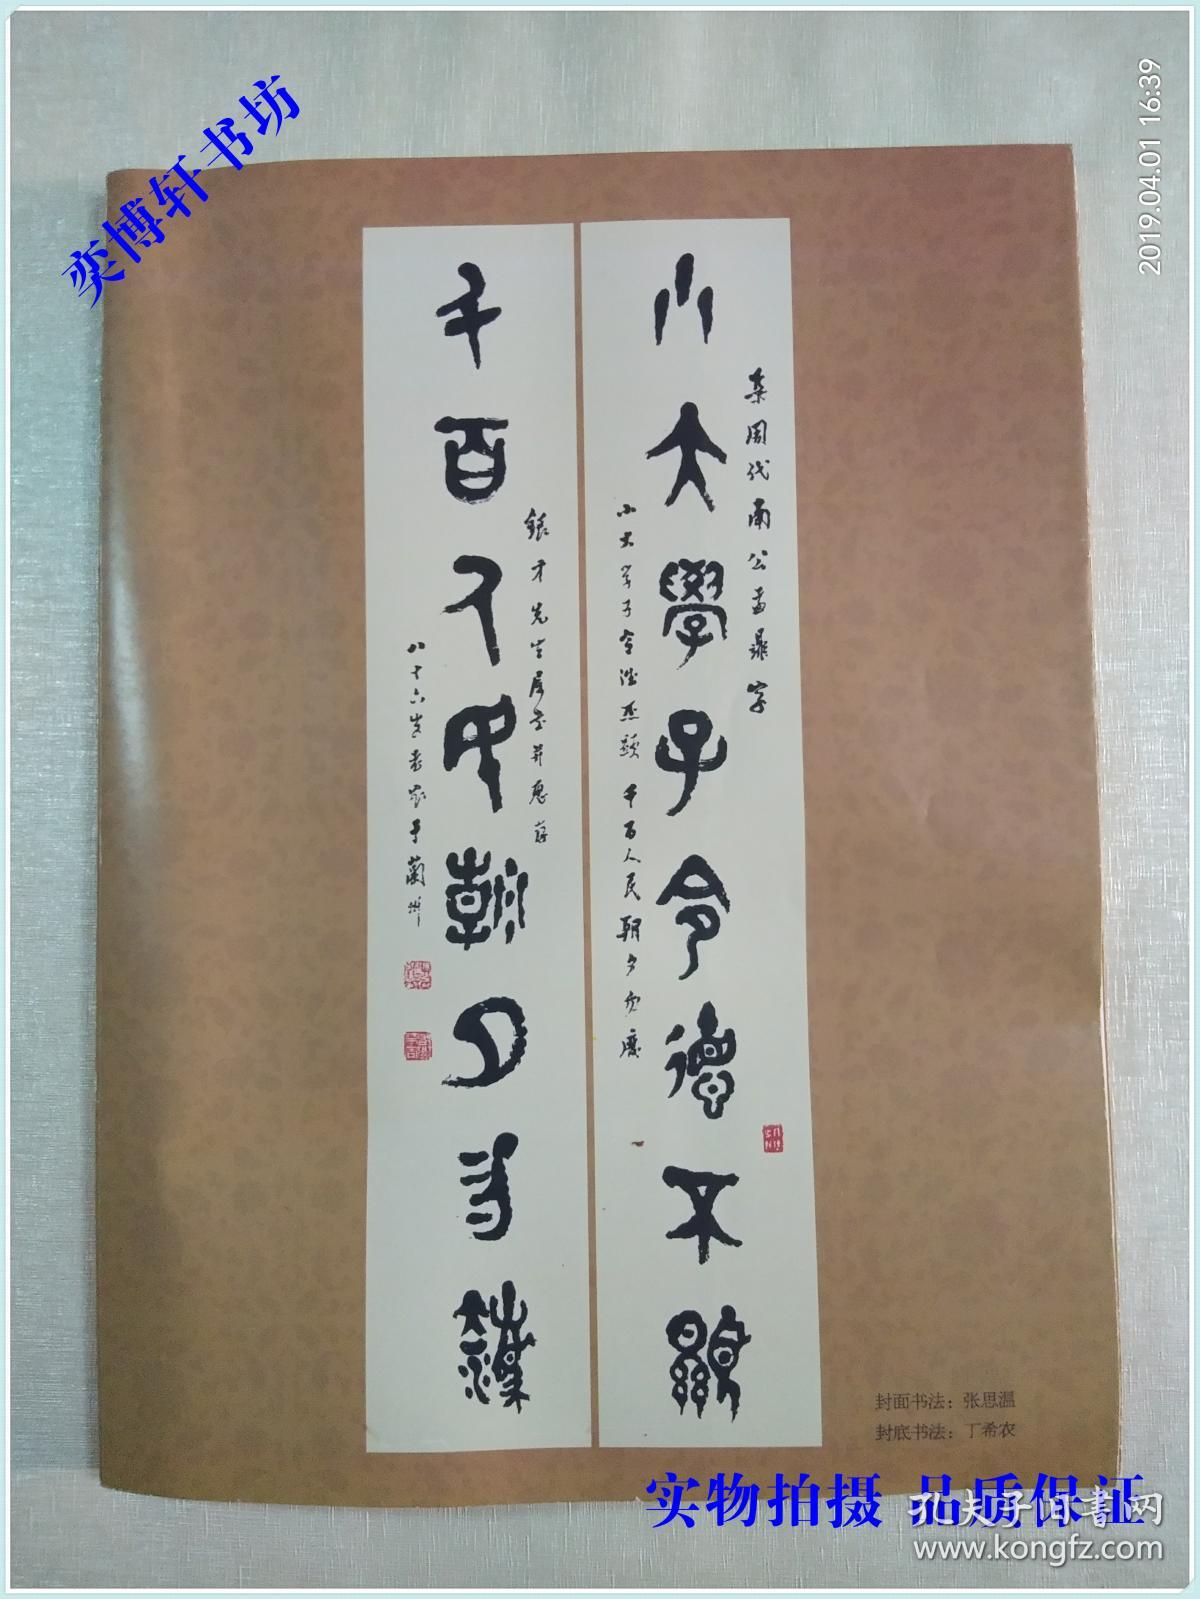 奕博轩书坊
2019.04.01 16:39
集周代南公盂鼎字
小大學子令德不顯
小大学子令德丕顯 千百人民朝夕
千百人民朝夕
先生属书并
八十六岁
于蘭州
封面书法：张思温
封底书法：丁希农
实物拍摄 品质保证
孔夫子旧书网
www.kongfz.com